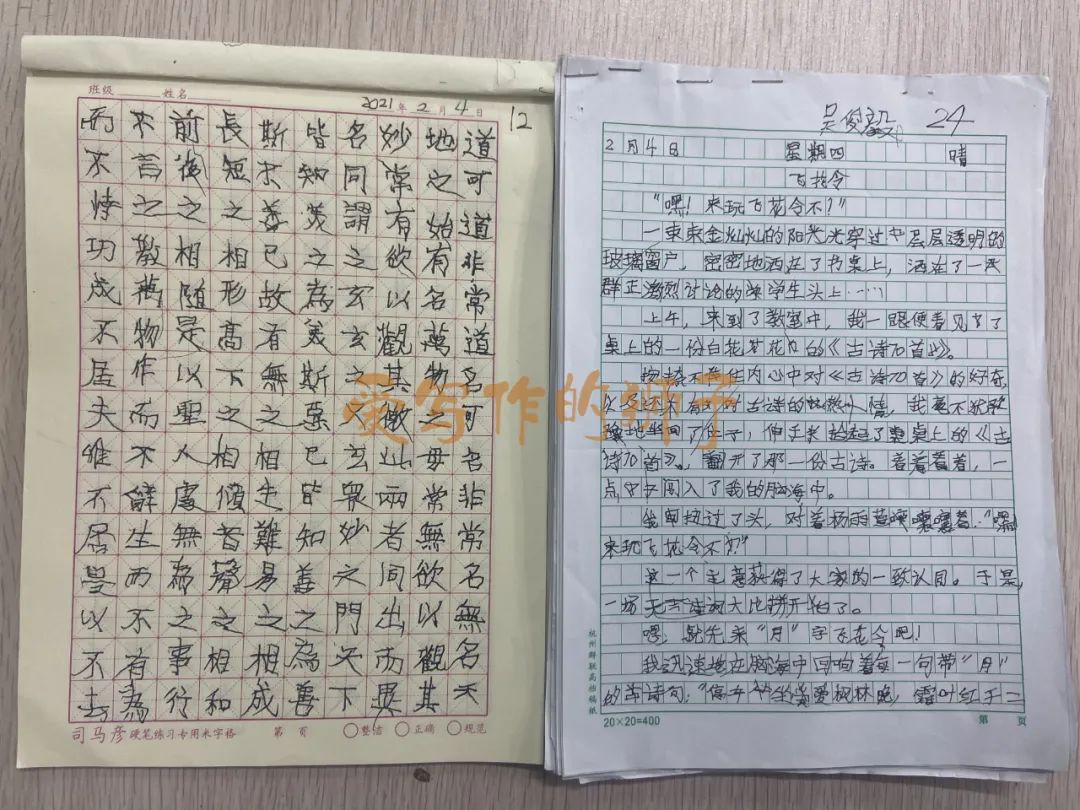 班级 姓名 2021年2月4日 12
道可道非常道名可名非常名無名天
地之始有名萬物之母常無欲以觀其
妙常有欲以觀其徼此兩者同出而異
名同謂之玄玄之又玄衆妙之門天下
皆知美之為美斯惡已皆知善之為善
斯不善已故有無之相生難易之相成
長短之相形髙下之相傾音聲之相和
前後之相随是以聖人處無為之事行
不言之教萬物作而不辭生而不有為
而不恃功成不居夫唯不居是以不去
司马彦 硬笔练习专用米字格 第 页 整洁 正确 规范
吴俊毅 24
2月4日 星期四 晴
飞花令
“嘿！来玩飞花令不？”
一束束金灿灿的阳光光穿过层层透明的
玻璃窗户，密密地洒在了书桌上，洒在了一
群正激烈讨论的学生头上……
上午，来到了教室中，我一眼便看见了
桌上的一份白花花的《古诗70首》。
按捺不住内心中对《古诗70首》的好奇，
以及还未有对古诗的热情，我毫不犹
豫地坐回了位子，伸手拾起了桌上的《古
诗70首》，翻开了那一份古诗。看着看着，一
点闯入了我的脑海中。
我扭过了头，对着杨雨萱嚷嚷着：“嘿
来玩飞花令不？”
这一个主意获得了大家的一致认同。于是，
一场大比拼开始了。
嘿，就先来“月”字飞花令吧！
我迅速地在脑海中回响着每一句带“月”
的古诗句：“停车坐爱枫林晚，霜叶红于二
杭州群联高档稿纸
20×20=400 第 页
爱写作的狮子